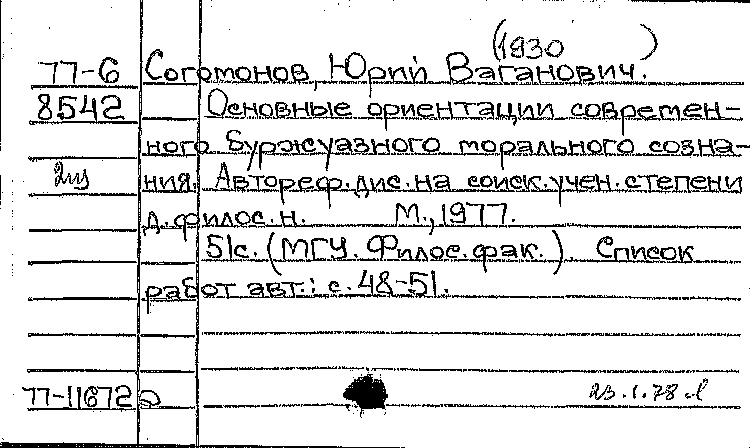 (1930 )
77-6 Согомонов, Юрий Ваганович.
8542 Основные ориентации современ-
ного буржуазного морального созна-
2из ния. Автореф. дис. на соиск. учен. степени
д. филос. н. М., 1977.
51с. (МГУ. Филос. фак.). Список
работ авт.: с. 48-51.
77-11672 23.1.78